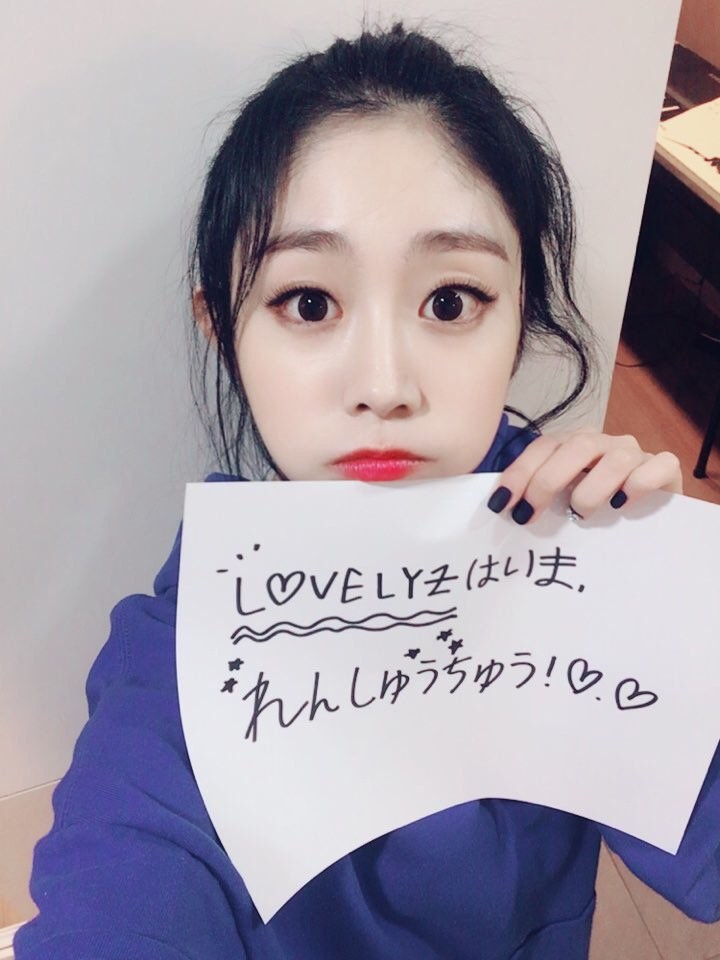 LOVELYZはいま,
れんしゅうちゅう!♡.♡